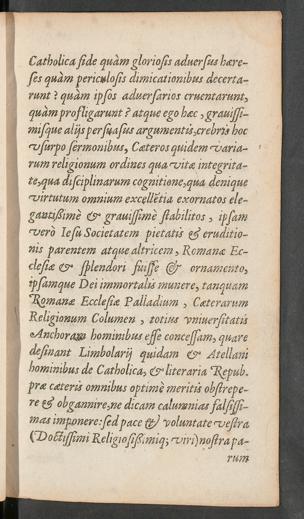 Catholica fide quàm gloriosis aduersus hære-
ses quàm periculosis dimicationibus decerta-
runt? quàm ipsos aduersarios cruentarunt,
quàm profligarunt? atque ego hæc, grauissi-
misque alijs persuasus argumentis, crebris hoc
vsurpo sermonibus, Cæteros quidem varia-
rum religionum ordines qua vitæ integrita-
te, qua disciplinarum cognitione, qua denique
virtutum omnium excellẽtia exornatos ele-
gantissimè & grauissimè stabilitos, ipsam
verò Iesu Societatem pietatis & eruditio-
nis parentem atque altricem, Romanæ Ec-
clesiæ & splendori fuisse & ornamento,
ipsamque Dei immortalis munere, tanquam
Romanæ Ecclesiæ Palladium, Cæterarum
Religionum Columen, totius vniuersitatis
Anchoram hominibus esse concessam, quare
desinant Limbolarij quidam & Atellani
hominibus de Catholica, & literaria Repub.
præ cæteris omnibus optimè meritis obstrepe-
re & obgannire, ne dicam calumnias falsissi-
mas imponere: sed pace & voluntate vestra
(Doctissimi Religiosiss. miq; viri) nostra pa-
rum